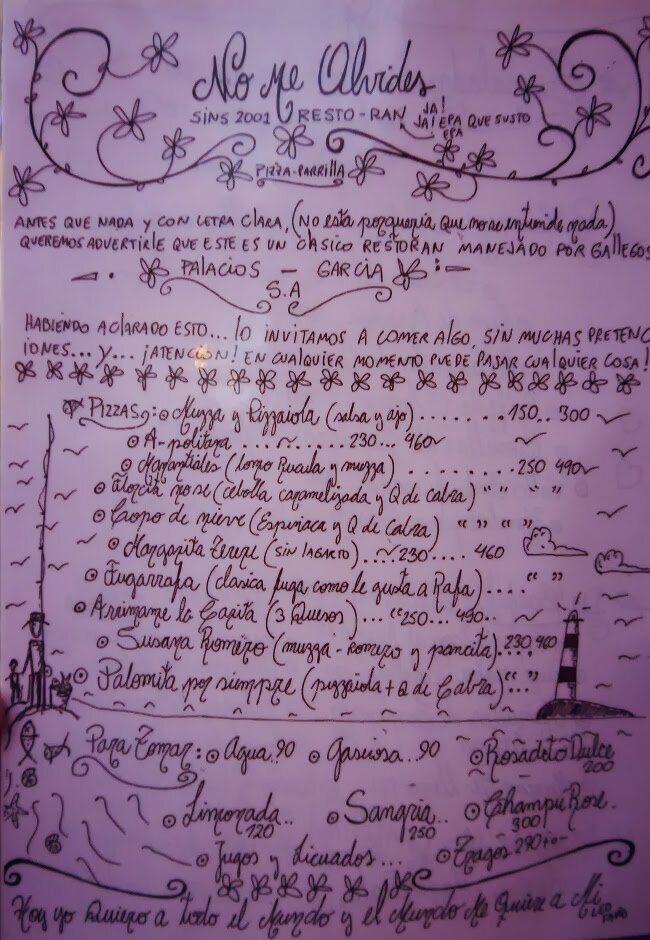 No Me Olvides
SINS 2001 RESTO-RAN JA! JA! EPA QUE SUSTO EPA
PIZZA-PARRILLA
ANTES QUE NADA Y CON LETRA CLARA, (No esta porqueria que no se entiende nada)
QUEREMOS ADVERTIRLE QUE ESTE ES UN CLASICO RESTORAN MANEJADO POR GALLEGOS
PALACIOS - GARCIA
S.A
HABIENDO ACLARADO ESTO... LO INVITAMOS A COMER ALGO, SIN MUCHAS PRETENC
IONES... Y... ¡ATENCION! EN CUALQUIER MOMENTO PUEDE PASAR CUALQUIER COSA!
PIZZAS: Muzza y Pizzaiola (salsa y ajo) ....... 150.. 300
A-politana ........ 230... 460
Manantiales (lomo Rucula y muzza) ........ 250 490
Florcita mose (cebolla caramelizada y Q de cabra) " " " "
Copo de nieve (Espinaca y Q de Cabra) " " " "
Margarita Terere (SIN LAGARTO)... 230.... 460
Fugarrafa (clasica fuga como le gusta a Rafa).... " "
Arrimame la Carita (3 Quesos)... "250... 490..
Susana Romero (muzza - romero y pancita).. 230 460
Palomita por siempre (pizzaiola + Q de Cabra) "..."
Para Tomar: Agua.90 Gaseosa..90 Rosadito Dulce
200
Limonada.. Sangria.. Champú Rose.
120 250 300
Jugos y Licuados... Tragos 290+o-
Hoy yo Quiero a todo el Mundo y el Mundo Me Quiere a Mi